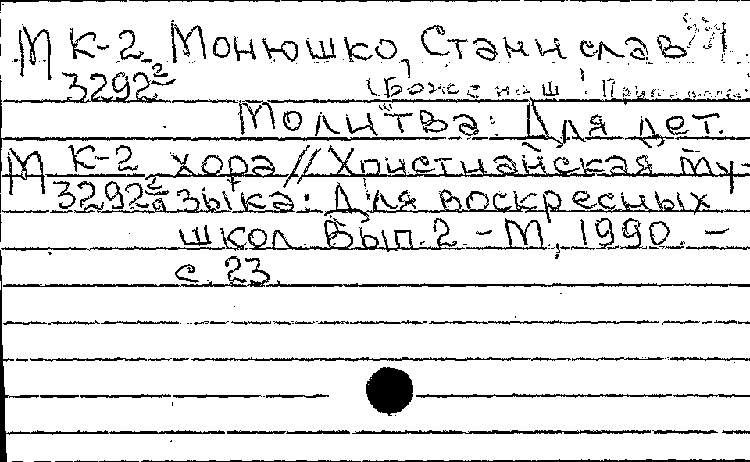 М К-2 Монюшко, Станислав
3292 (Боже наш!
Молитва: Для дет.
М К-2 хора // Христианская му-
3292 зыка: Для воскресных
школ. Вып. 2. - М, 1990. -
с. 23.